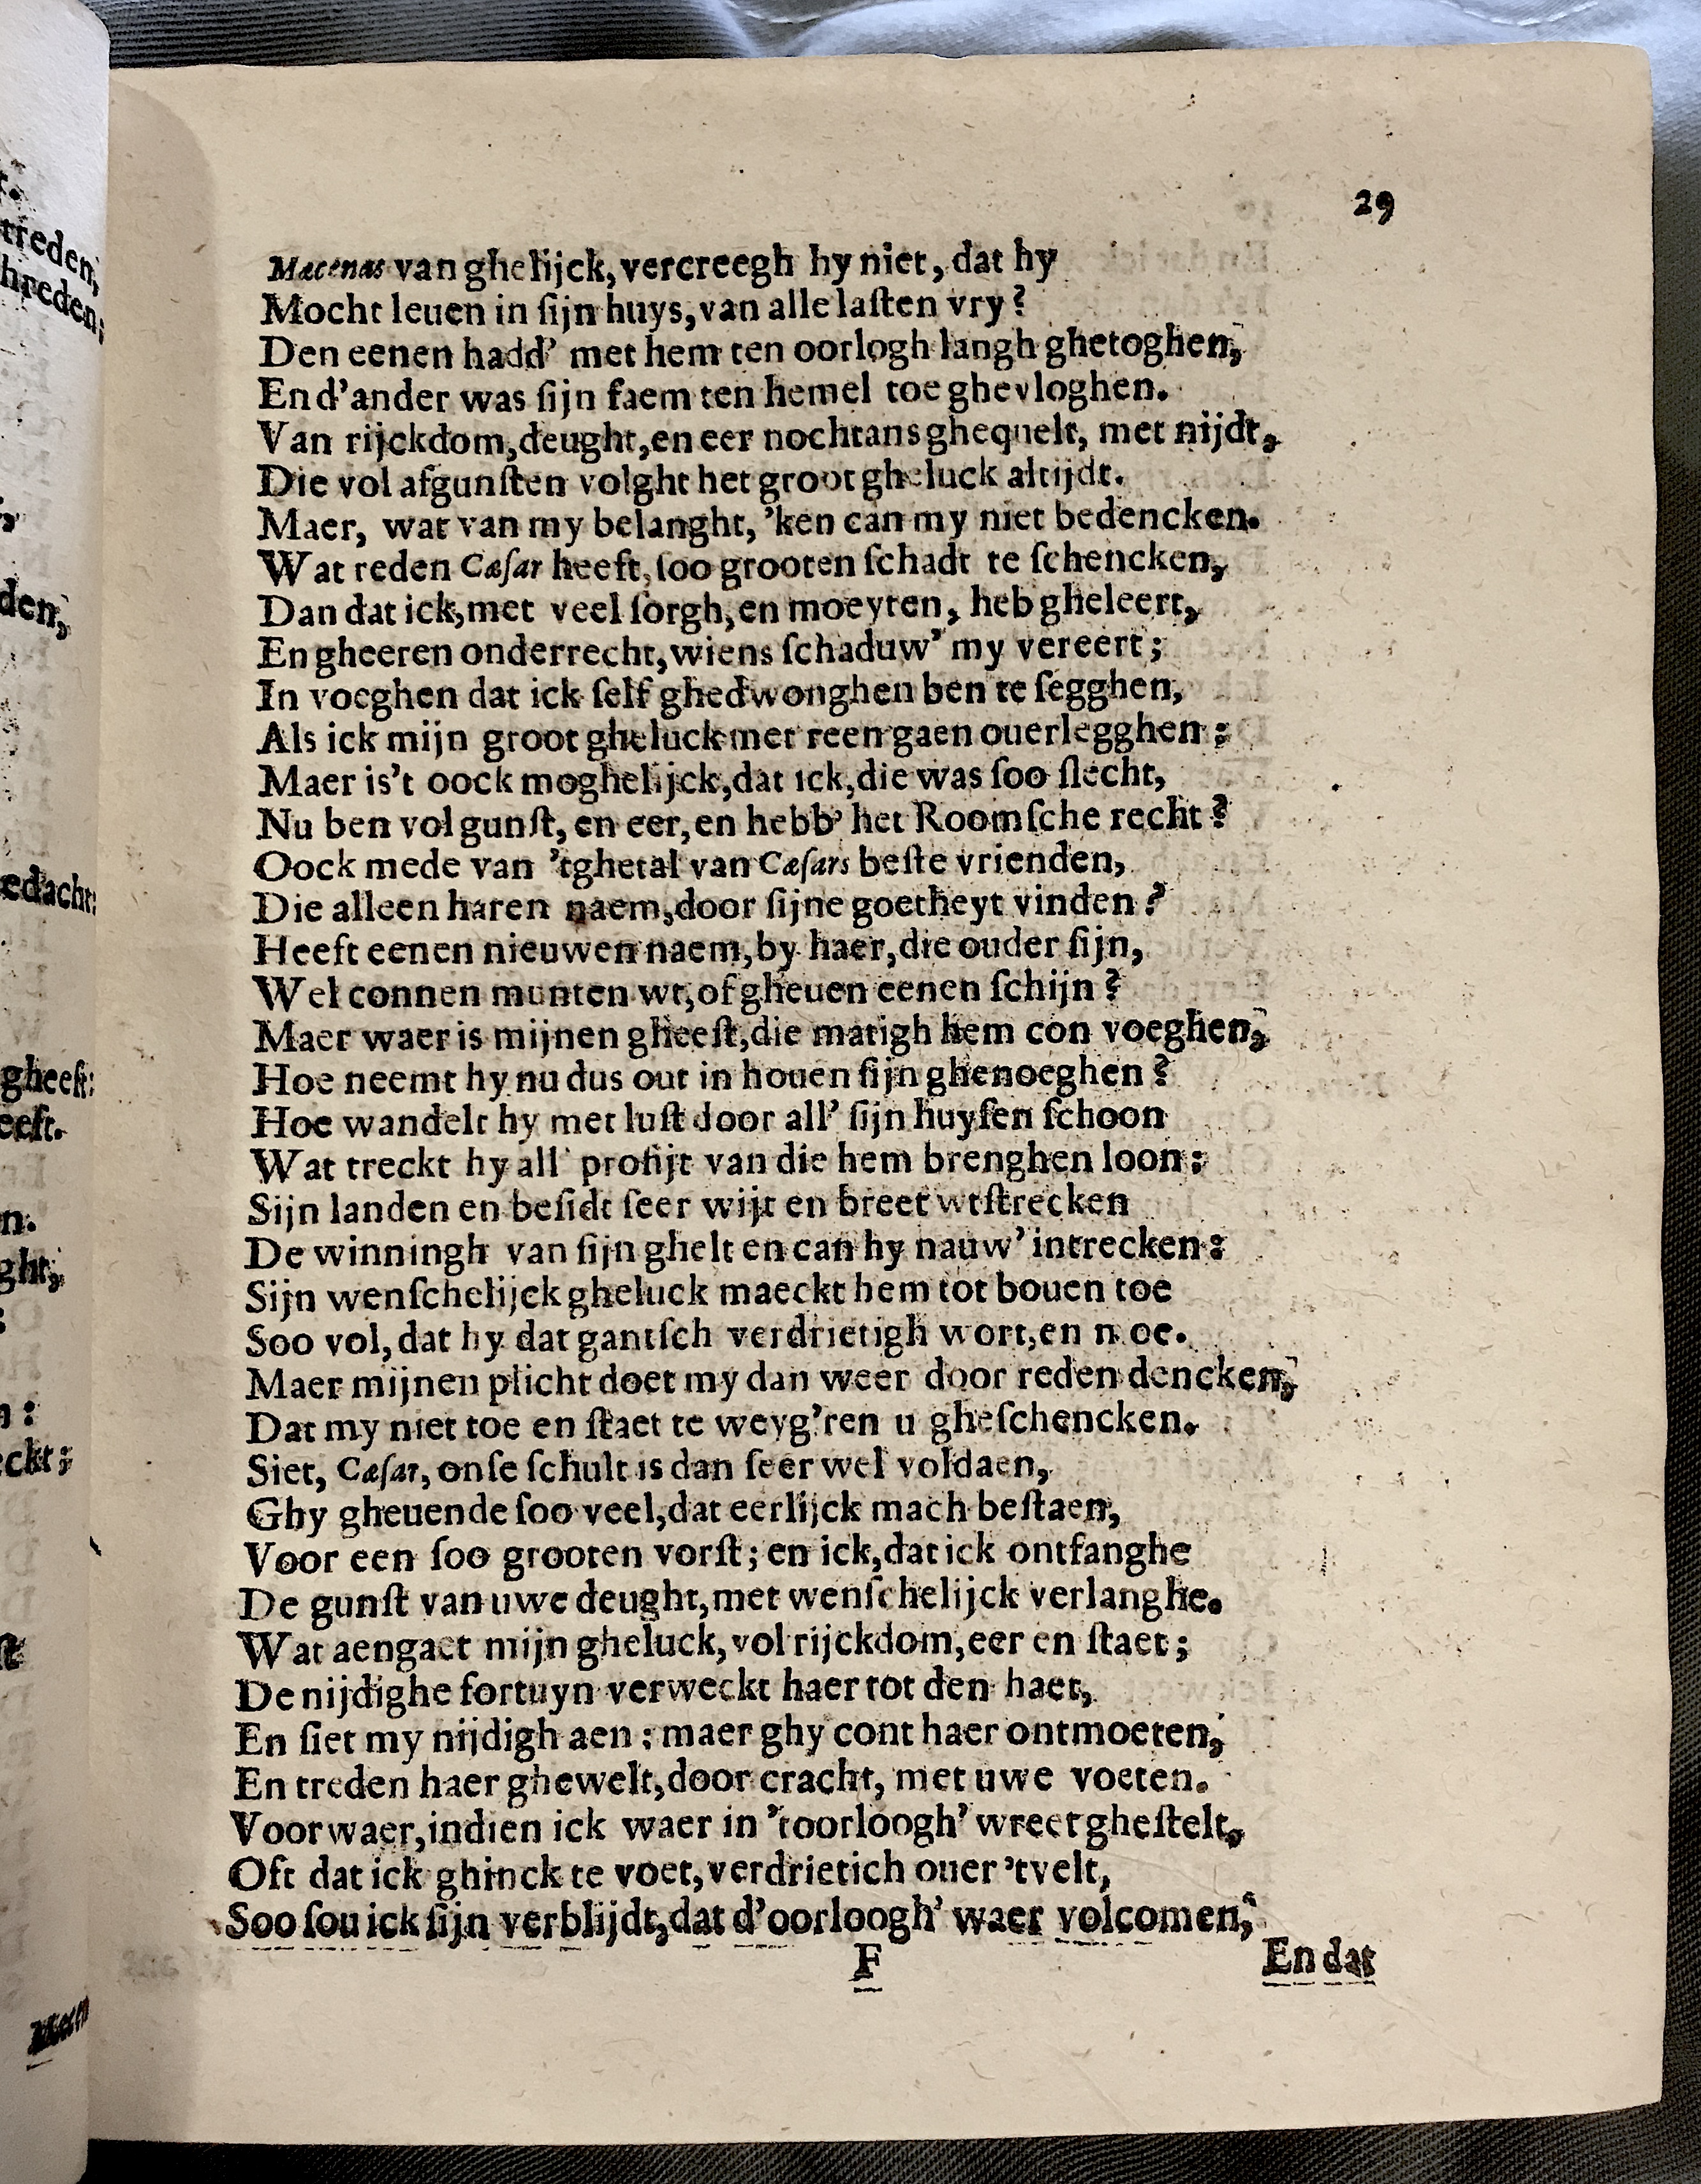 29
Mæcenas van ghelijck, vercreegh hy niet, dat hy
Mocht leuen in ſijn huys, van alle laſten vry?
Den eenen hadd' met hem ten oorlogh langh ghetoghen,
En d'ander was ſijn faem ten hemel toe ghevloghen.
Van rijckdom, deught, en eer nochtans ghequelt, met nijdt,
Die vol afgunſten volght het groot gheluck altijdt.
Maer, wat van my belanght, 'ken can my niet bedencken.
Wat reden Cæſar heeft, ſoo grooten ſchadt te ſchencken,
Dan dat ick, met veel ſorgh, en moeyten, heb gheleert,
En gheeren onderrecht, wiens ſchaduw' my vereert;
In voeghen dat ick ſelf ghedwonghen ben te ſegghen,
Als ick mijn groot gheluck met reen gaen ouerlegghen:
Maer is't oock moghelijck, dat ick, die was ſoo ſlecht,
Nu ben vol gunſt, en eer, en hebb' het Roomſche recht?
Oock mede van 'tghetal van Cæſars beſte vrienden,
Die alleen haren naem, door ſijne goetheyt vinden?
Heeft eenen nieuwen naem, by haer, die ouder ſijn,
Wel connen munten wt, of gheuen eenen ſchijn?
Maer waer is mijnen gheeſt, die matigh hem con voeghen,
Hoe neemt hy nu dus out in houen ſijn ghenoeghen?
Hoe wandelt hy met luſt door all' ſijn huyſen ſchoon
Wat treckt hy all' profijt van die hem brenghen loon:
Sijn landen en beſidt ſeer wijt en breet wtſtrecken
De winningh van ſijn ghelt en can hy nauw' intrecken:
Sijn wenſchelijck gheluck maeckt hem tot bouen toe
Soo vol, dat hy dat gantſch verdrietigh wort, en moe.
Maer mijnen plicht doet my dan weer door reden dencken,
Dat my niet toe en ſtaet te weyg'ren u gheſchencken.
Siet, Cæſar, onſe ſchult is dan ſeer wel voldaen,
Ghy gheuende ſoo veel, dat eerlijck mach beſtaen,
Voor een ſoo grooten vorſt; en ick, dat ick ontfanghe
De gunſt van uwe deught, met wenſchelijck verlanghe.
Wat aengaet mijn gheluck, vol rijckdom, eer en ſtaet;
De nijdighe fortuyn verweckt haer tot den haet,
En ſiet my nijdigh aen: maer ghy cont haer ontmoeten,
En treden haer ghewelt, door cracht, met uwe voeten.
Voorwaer, indien ick waer in 'toorloogh' wreet gheſtelt,
Oft dat ick ghinck te voet, verdrietich ouer 'tvelt,
Soo ſou ick ſijn verblijdt, dat d'oorloogh' waer volcomen,
F
En dat